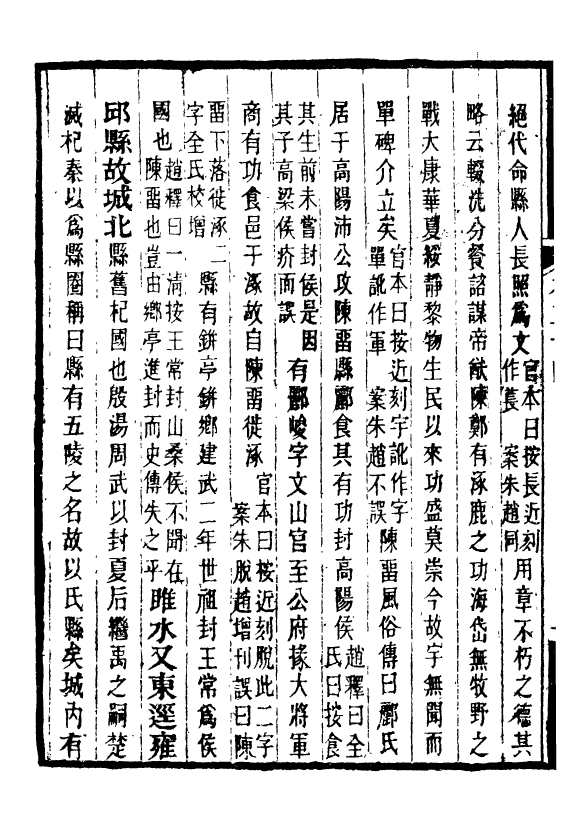 絕代命縣人長照爲文官本曰按長近刻作萇 案朱趙同用章不朽之德其
略云輟洗分餐諮謀帝猷陳鄭有涿鹿之功海岱無牧野之
戰大康華夏綏靜黎物生民以來功盛莫崇今故字無聞而
單碑介立矣官本曰按近刻字訛作字單訛作軍 案朱趙不誤陳畱風俗傳曰酈氏
居于高陽沛公攻陳畱縣酈食其有功封高陽侯趙釋曰全氏曰按食
其生前未嘗封侯是因其子高梁侯疥而誤有酈峻字文山官至公府掾大將軍
商有功食邑于涿故自陳畱徙涿官本曰按近刻脫此二字案朱脫趙增刊誤曰陳
畱下落徙涿二字全氏校增縣有鉼亭鉼鄉建武二年世祖封王常爲侯
國也趙釋曰一淸按王常封山桑侯不聞在陳畱也豈由鄉亭進封而史傳失之乎睢水又東逕雍
邱縣故城北縣舊杞國也殷湯周武以封夏后繼禹之嗣楚
滅杞秦以爲縣圈稱曰縣有五陵之名故以氏縣矣城內有